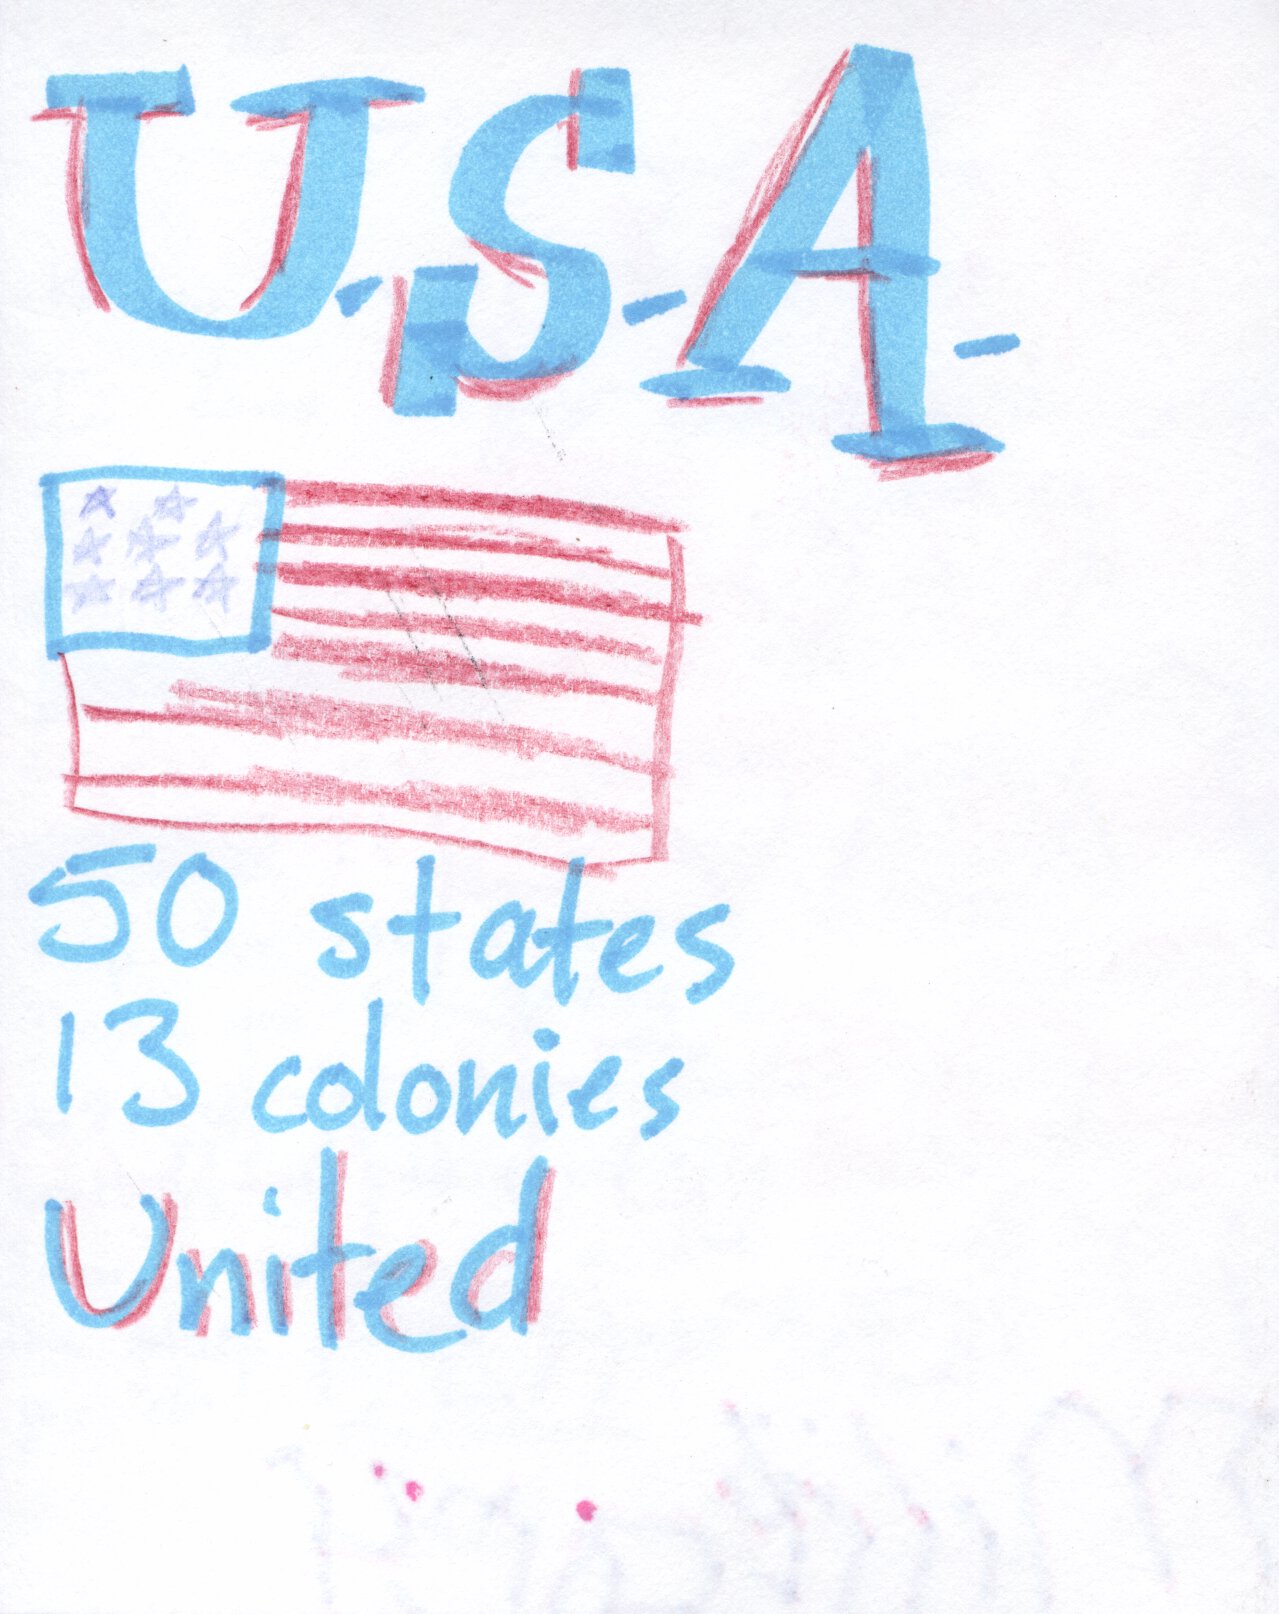 U.S.A.
50 states
13 colonies
United